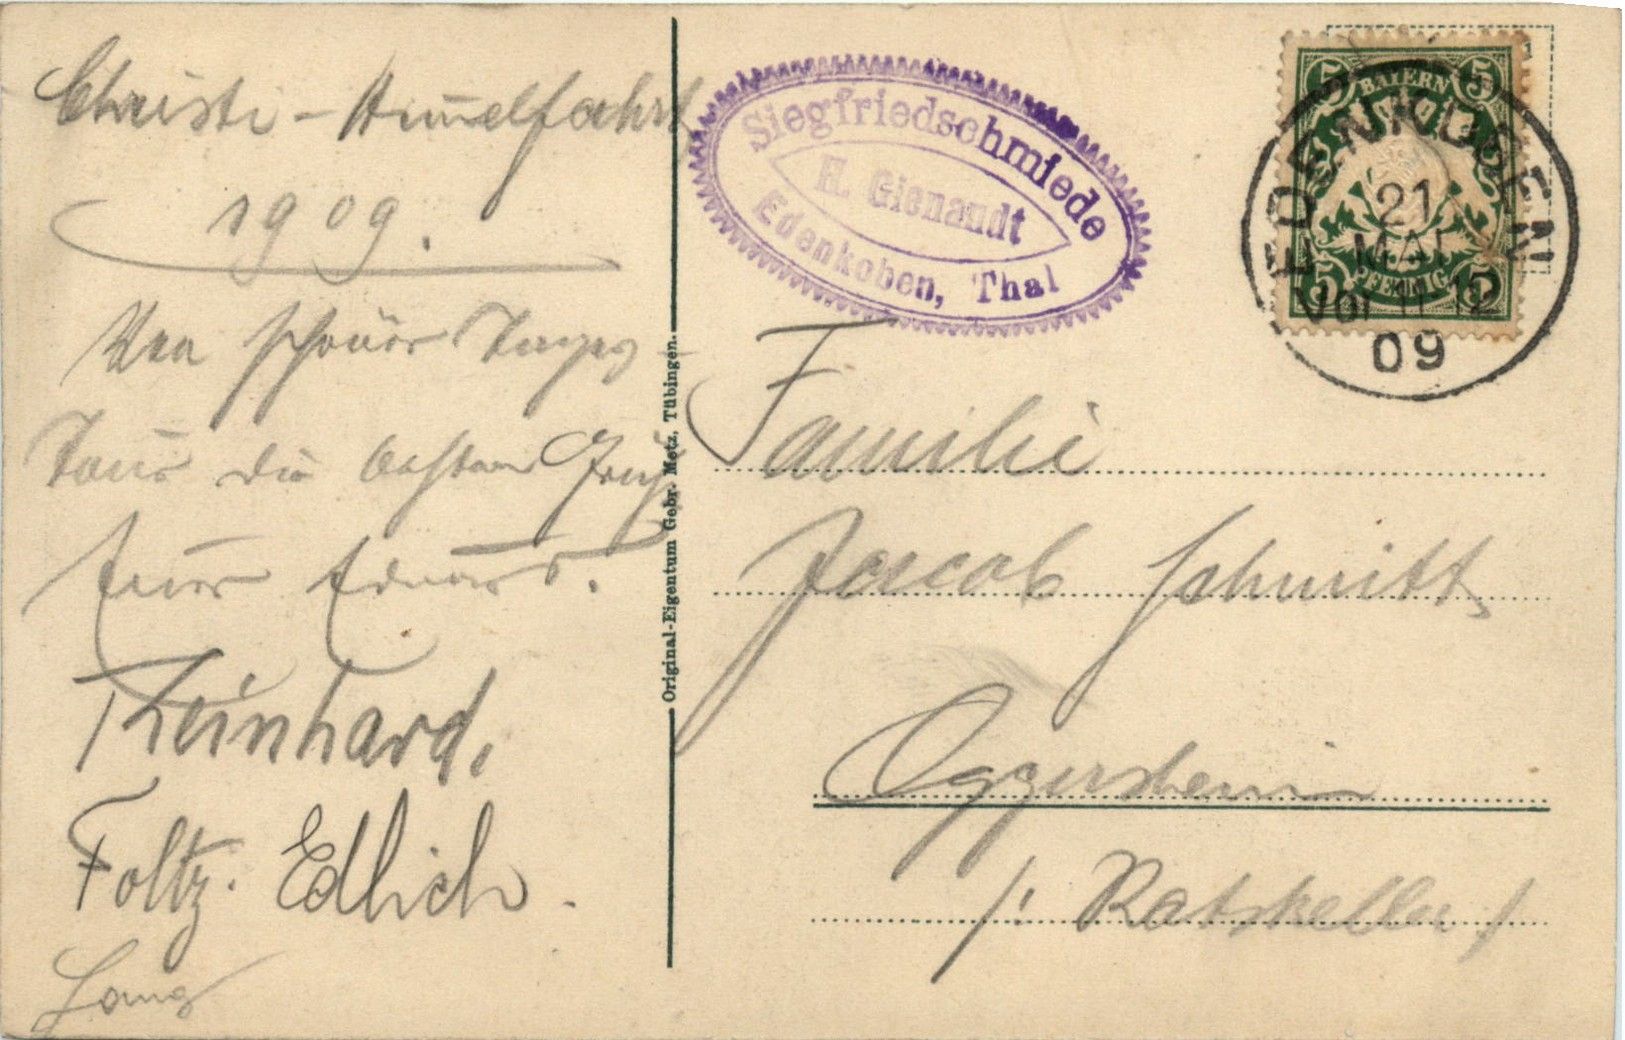 Christi-Himmelfahrt
1909.
die besten Grüße
Eduard.
Reinhard,
Foltz. Edlich.
Lang
Original-Eigentum Gebr. Metz, Tübingen.
Siegfriedschmiede
H. Gienandt
Edenkoben, Thal
5 BAYERN 5
5 PFENNIG 5
EDENKOBEN
21
MAI
Vor 11-12
09
Familie
Jacob Schmitt
Oggersheim
/: Ratskeller /